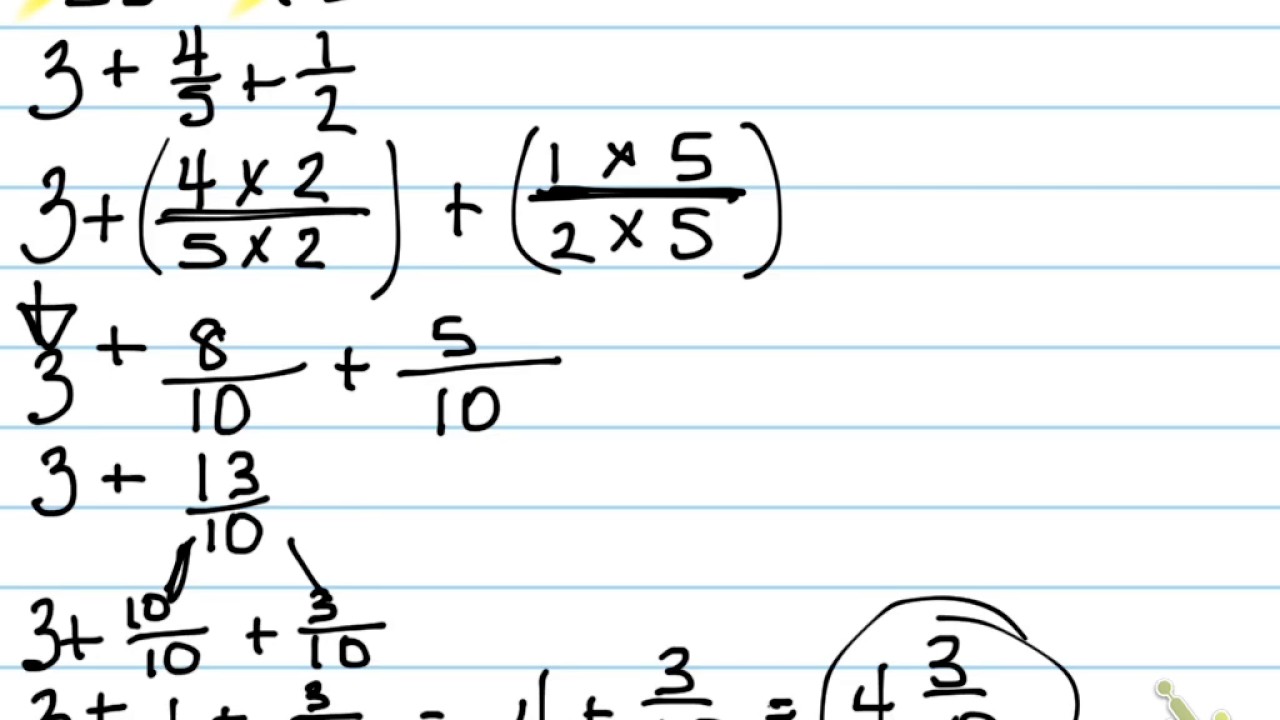 3 + 4/5 + 1/2
3 + (4 × 2 / 5 × 2) + (1 × 5 / 2 × 5)
3 + 8/10 + 5/10
3 + 13/10
3 + 10/10 + 3/10
3 + 1 + 3/10 = 4 + 3/10 = 4 3/10